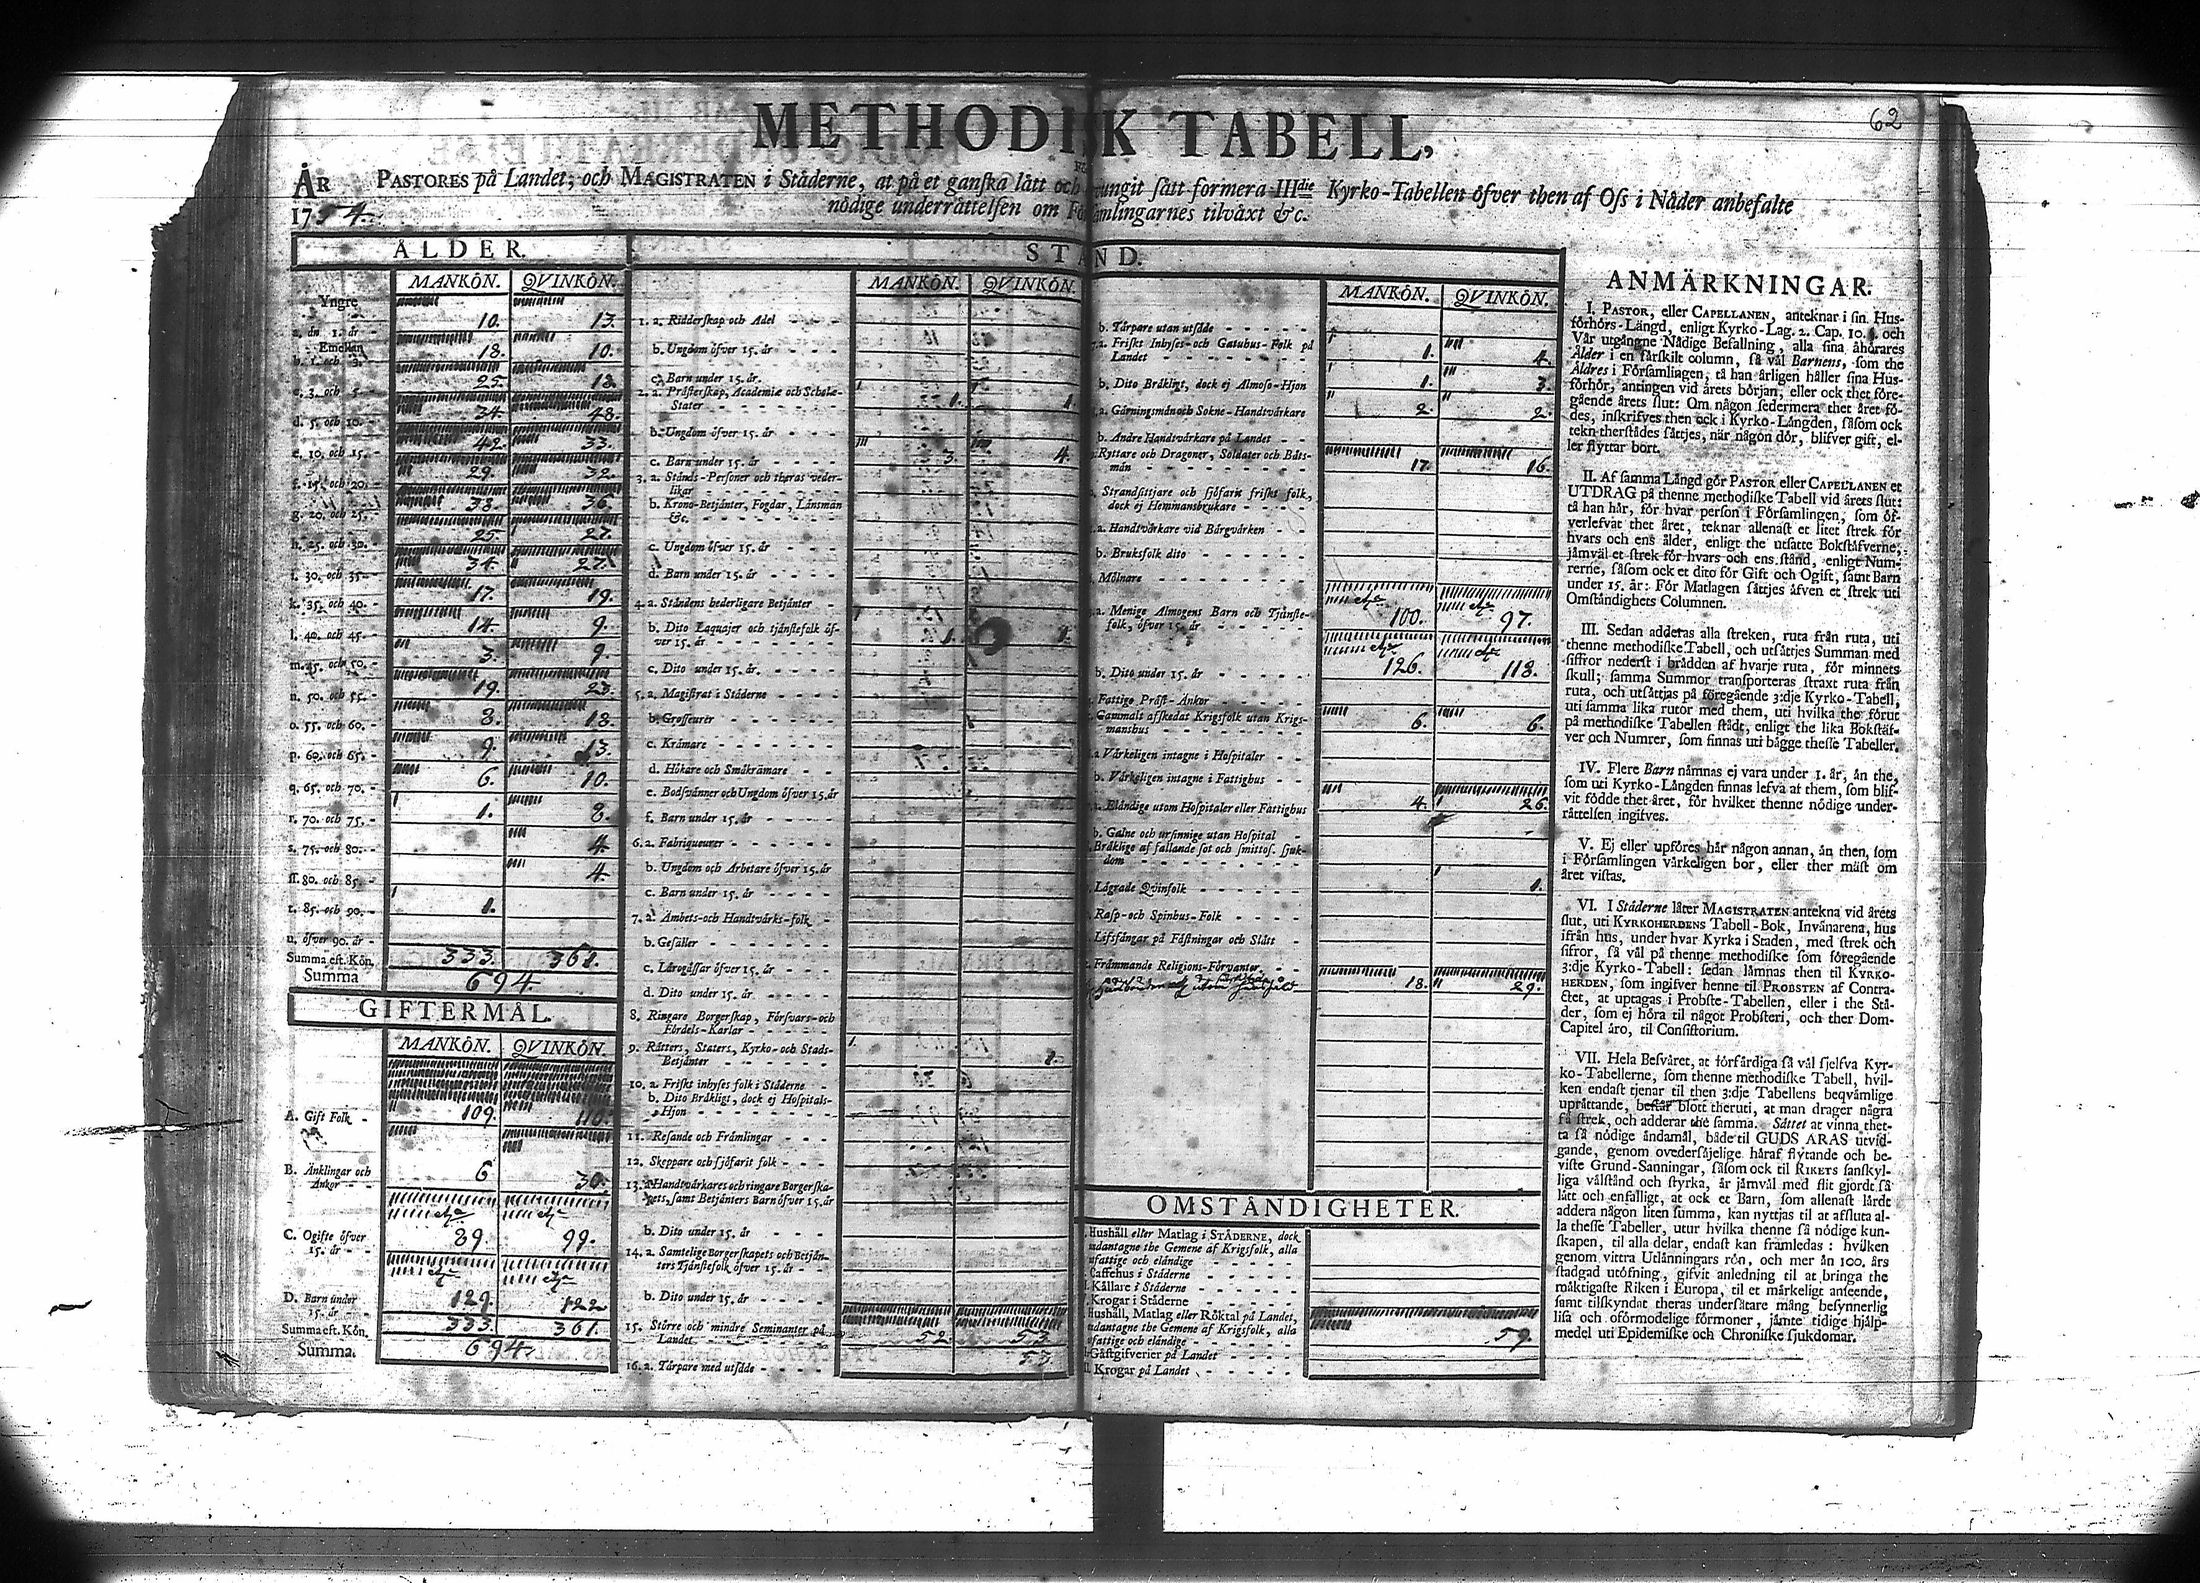 62
METHODISK TABELL,
ÅR PASTORES på Landet, och MAGISTRATEN i Städerne, at på et ganska lätt och tvungit sätt formera IIIdie Kyrko-Tabellen öfver then af Oss i Nåder anbefalte
1754. nödige underrättelsen om Församlingarnes tilväxt &c.
ÅLDER.
MANKÖN. QVINKÖN.
Yngre
a. än 1. år - 10. 13.
Emellan
b. 1. och 3. 18. 10.
c. 3. och 5. - 25. 18.
d. 5. och 10. - 34. 48.
e. 10. och 15. - 42. 33.
f. 15. och 20. - 29. 32.
g. 20. och 25. - 38. 36.
h. 25. och 30. - 25. 27.
i. 30. och 35. - 34. 27.
k. 35. och 40. - 17. 19.
l. 40. och 45. - 14. 9.
m. 45. och 50. - 3. 9.
n. 50. och 55. - 19. 23.
o. 55. och 60. - 8. 18.
p. 60. och 65. - 9. 13.
q. 65. och 70. - 6. 10.
r. 70. och 75. - 1. 8.
s. 75. och 80. - 4.
ss. 80. och 85. - 4.
t. 85. och 90. - 1.
u. öfver 90. år -
Summa eft. Kön. 333. 361.
Summa 694.
GIFTERMÅL.
MANKÖN. QVINKÖN.
A. Gift Folk - 109. 110.
B. Änklingar och
Änkor - - 6 30.
C. Ogifte öfver
15. år - - 89. 99.
D. Barn under
15. år - - 129. 122
Summa eft. Kön. 333. 361.
Summa. 694.
STÅND.
MANKÖN. QVINKÖN.
1. a. Ridderskap och Adel
b. Ungdom öfver 15. år
c. Barn under 15. år.
2. a. Prästerskap, Academiæ och Schole-
Stater 1. 1.
b. Ungdom öfver 15. år
c. Barn under 15. år 3. 4.
3. a. Stånds-Personer och theras veder-
likar
b. Krono-Betjänter, Fogdar, Länsmän
&c.
c. Ungdom öfver 15. år
d. Barn under 15. år
4. a. Ståndens hederligare Betjänter
b. Dito Laquajer och tjänstefolk öf-
ver 15. år 1. 1.
c. Dito under 15. år.
5. a. Magistrat i Städerne
b. Grosseurer
c. Krämare
d. Hökare och Småkrämare
e. Bodsvänner och Ungdom öfver 15. år
f. Barn under 15. år
6. a. Fabriqueurer
b. Ungdom och Arbetare öfver 15. år
c. Barn under 15. år
7. a. Ämbets- och Handtvärks-folk
b. Gesäller
c. Lärogåssar öfver 15. år
d. Dito under 15. år
8. Ringare Borgerskap, Försvars- och
Fördels-Karlar
9. Rätters, Staters, Kyrko- och Stads-
Betjänter 1.
10. a. Friskt inhyses folk i Städerne
b. Dito Bräkligt, dock ej Hospitals-
Hjon
11. Resande och Främlingar
12. Skeppare och sjöfarit folk
13. a. Handtvärkares och ringare Borgerska-
pets, samt Betjänters Barn öfver 15. år
b. Dito under 15. år
14. a. Samtelige Borgerskapets och Betjän-
ters Tjänstefolk öfver 15. år
b. Dito under 15. år
15. Större och mindre Seminanter på
Landet 52. 53.
53
16. a. Torpare med utsäde
MANKÖN. QVINKÖN.
b. Torpare utan utsäde
a. Friskt Inhyses- och Gatuhus-Folk på
Landet 1. 4.
b. Dito Bräkligt, dock ej Almoso-Hjon 1. 3.
a. Gärningsmän och Sokne-Handtvärkare 2. 2.
b. Andre Handtvärkare på Landet
Ryttare och Dragoner, Soldater och Båts-
män 17. 16.
Strandsittjare och sjöfarit friskt folk,
dock ej Hemmansbrukare
a. Handtvärkare vid Bärgvärken
b. Bruksfolk dito
Mölnare
a. Menige Almogens Barn och Tjänste-
folk, öfver 15. år 100. 97.
b. Dito under 15. år 126. 118.
Fattige Präst-Änkor
Gammalt afskedat Krigsfolk utan Krigs-
manshus 6. 6.
a. Värkeligen intagne i Hospitaler
b. Värkeligen intagne i Fattighus
a. Eländige utom Hospitaler eller Fattighus 4. 26.
b. Galne och ursinnige utan Hospital
Bräklige af fallande sot och smittos. sjuk-
dom
Lägrade Qvinfolk 1.
Rasp- och Spinhus-Folk
Lifsfångar på Fästningar och Slått
Främmande Religions-Förvanter
18. 29.
OMSTÄNDIGHETER.
Hushåll eller Matlag i STÄDERNE, dock
undantagne the Gemene af Krigsfolk, alla
ufattige och eländige
Caffehus i Städerne
Källare i Städerne
Krogar i Städerne
Hushåll, Matlag eller Röktal på Landet,
undantagne the Gemene af Krigsfolk, alla
ofattige och eländige 59.
Gästgifverier på Landet
Krogar på Landet
ANMÄRKNINGAR.
I. PASTOR, eller CAPELLANEN, anteknar i sin Hus-
förhörs-Längd, enligt Kyrko-Lag. 2. Cap. 10. §. och
Vår utgångne Nådige Befallning, alla sina åhörares
Ålder i en särskilt column, så väl Barnens, som the
Äldres i Församlingen, tå han årligen håller sina Hus-
förhör, antingen vid årets början, eller ock thet före-
gående årets slut: Om någon sedermera thet året fö-
des, inskrifves then ock i Kyrko-Längden, såsom ock
tekn therstädes sättjes, när någon dör, blifver gift, el-
ler flyttar bort.
II. Af samma Längd gör PASTOR eller CAPELLANEN et
UTDRAG på thenne methodiske Tabell vid årets slut:
tå han här, för hvar person i Församlingen, som öf-
verlefvat thet året, teknar allenast et litet strek för
hvars och ens ålder, enligt the utsatte Bokstäfverne,
jämväl et strek för hvars och ens stånd, enligt Num-
rerne, såsom ock et dito för Gift och Ogift, samt Barn
under 15. år: För Matlagen sättjes äfven et strek uti
Omständighets Columnen.
III. Sedan adderas alla streken, ruta från ruta, uti
thenne methodiske Tabell, och utsättjes Summan med
siffror nederst i brädden af hvarje ruta, för minnets
skull; samma Summor transporteras straxt ruta från
ruta, och utsättjas på föregående 3:dje Kyrko-Tabell,
uti samma lika rutor med them, uti hvilka the förut
på methodiske Tabellen städt, enligt the lika Bokstäf-
ver och Numrer, som finnas uti bägge thesse Tabeller.
IV. Flere Barn nämnas ej vara under 1. år, än the,
som uti Kyrko-Längden finnas lefva af them, som blif-
vit födde thet året, för hvilket thenne nödige under-
rättelsen ingifves.
V. Ej eller upföres här någon annan, än then, som
i Församlingen värkeligen bor, eller ther mäst om
året vistas.
VI. I Städerne låter MAGISTRATEN antekna vid årets
slut, uti KYRKOHERDENS Tabell-Bok, Invånarena, hus
ifrån hus, under hvar Kyrka i Staden, med strek och
siffror, så väl på thenne methodiske som föregående
3:dje Kyrko-Tabell: sedan lämnas then til KYRKO-
HERDEN, som ingifver henne til PROBSTEN af Contra-
ctet, at uptagas i Probste-Tabellen, eller i the Stä-
der, som ej höra til något Probsteri, och ther Dom-
Capitel äro, til Consistorium.
VII. Hela Besväret, at förfärdiga så väl sjelfva Kyr-
ko-Tabellerne, som thenne methodiske Tabell, hvil-
ken endast tjenar til then 3:dje Tabellens beqvämlige
uprättande, består blott theruti, at man drager några
få strek, och adderar the samma. Sättet at vinna thet-
ta så nödige ändamål, både til GUDS ÄRAS utvid-
gande, genom ovedersäjelige häraf flytande och be-
viste Grund-Sanningar, såsom ock til RIKETS sanskyl-
liga välstånd och styrka, är jämväl med flit gjordt så
lätt och enfalligt, at ock et Barn, som allenast lärdt
addera någon liten summa, kan nyttjas til at afsluta al-
la thesse Tabeller, utur hvilka thenne så nödige kun-
skapen, til alla delar, endast kan främledas: hvilken
genom vittra Utlänningars rön, och mer än 100. års
stadgad utöfning, gifvit anledning til at bringa the
mäktigaste Riken i Europa, til et märkeligt anseende,
samt tilskyndat theras undersåtare mång besynnerlig
lisa och oförmodelige förmoner, jämte tidige hjälp-
medel uti Epidemiske och Chroniske sjukdomar.